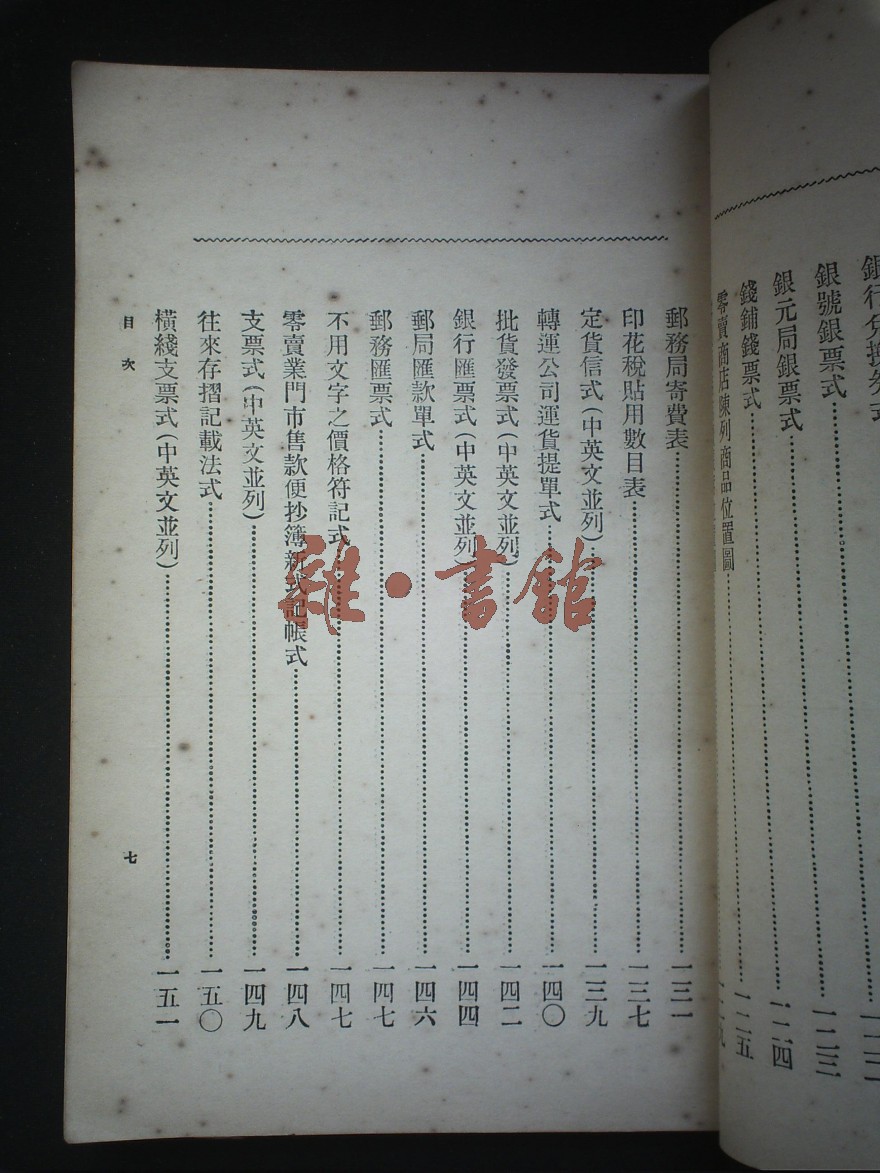 銀行兌換券式
銀號銀票式⋯⋯一二三
銀元局銀票式⋯⋯一二四
錢鋪錢票式⋯⋯一二五
零賣商店陳列商品位置圖⋯⋯一二九
郵務局寄費表⋯⋯一三一
印花稅貼用數目表⋯⋯一三七
定貨信式(中英文並列)⋯⋯一三九
轉運公司運貨提單式⋯⋯一四〇
批貨發票式(中英文並列)⋯⋯一四二
銀行匯票式(中英文並列)⋯⋯一四四
郵局匯款單式⋯⋯一四六
郵務匯票式⋯⋯一四七
不用文字之價格符記式⋯⋯一四七
零賣業門市售款便抄簿新式記帳式⋯⋯一四八
支票式(中英文並列)⋯⋯一四九
往來存摺記載法式⋯⋯一五〇
橫綫支票式(中英文並列)⋯⋯一五一
目次
七
雜·書館